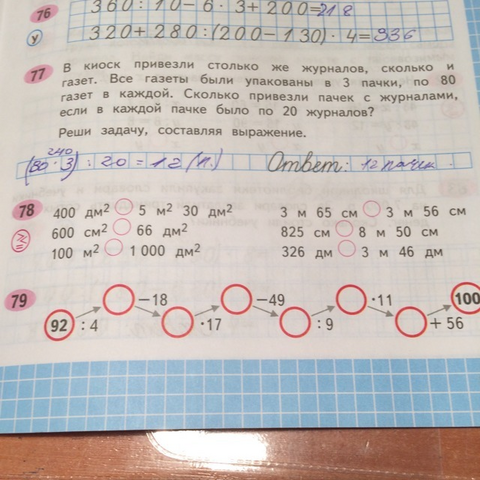 76 360 : 10 – 6 · 3 + 200 = 218
у 320 + 280 : (200 – 130) · 4 = 336
77 В киоск привезли столько же журналов, сколько и
газет. Все газеты были упакованы в 3 пачки, по 80
газет в каждой. Сколько привезли пачек с журналами,
если в каждой пачке было по 20 журналов?
Реши задачу, составляя выражение.
240
(80 · 3) : 20 = 12 (п.) Ответ: 12 пачек.
78 400 дм² 5 м² 30 дм² 3 м 65 см 3 м 56 см
600 см² 66 дм² 825 см 8 м 50 см
100 м² 1 000 дм² 326 дм 3 м 46 дм
79 –18 –49 ·11 100
92 : 4 ·17 : 9 + 56